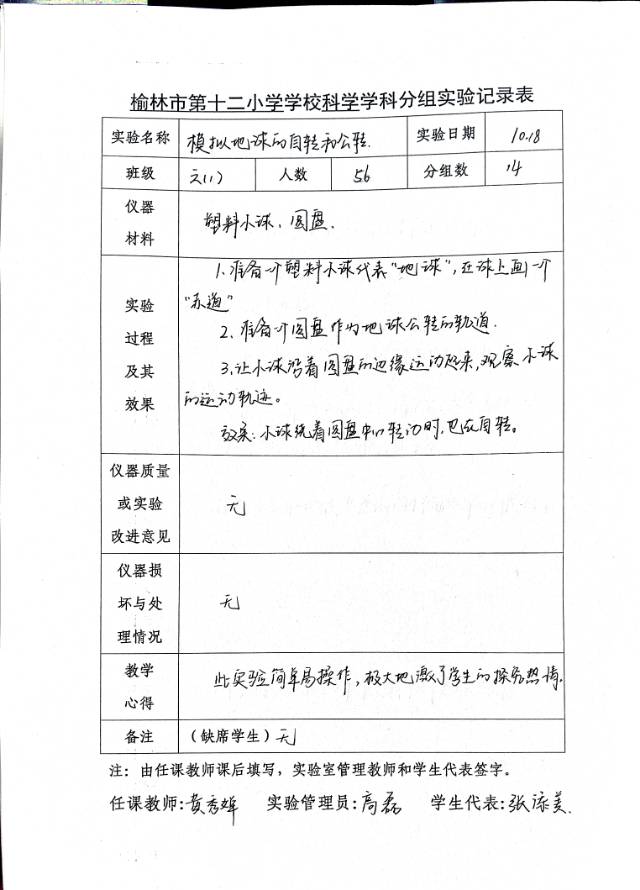 榆林市第十二小学学校科学学科分组实验记录表
实验名称 模拟地球的自转和公转. 实验日期 10.18
班级 六(1) 人数 56 分组数 14
仪器
材料
塑料小球、圆盘.
实验
过程
及其
效果
1.准备一个塑料小球代表"地球",在球上画一个
"赤道"
2.准备一个圆盘作为地球公转的轨道.
3.让小球沿着圆盘的边缘运动起来,观察小球
的运动轨迹。
效果:小球绕着圆盘中心转动时,也在自转。
仪器质量
或实验
改进意见
无
仪器损
坏与处
理情况
无
教学
心得
此实验简单易操作,极大地激了学生的探究热情.
备注 (缺席学生)无
注:由任课教师课后填写,实验室管理教师和学生代表签字。
任课教师:黄秀 实验管理员:高磊 学生代表:张美